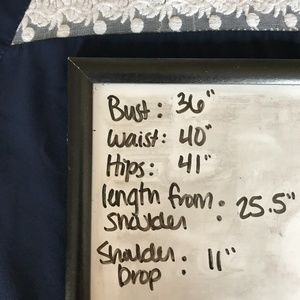 Bust: 36"
Waist: 40"
Hips: 41"
length from
shoulder : 25.5"
Shoulder
Drop : 11"